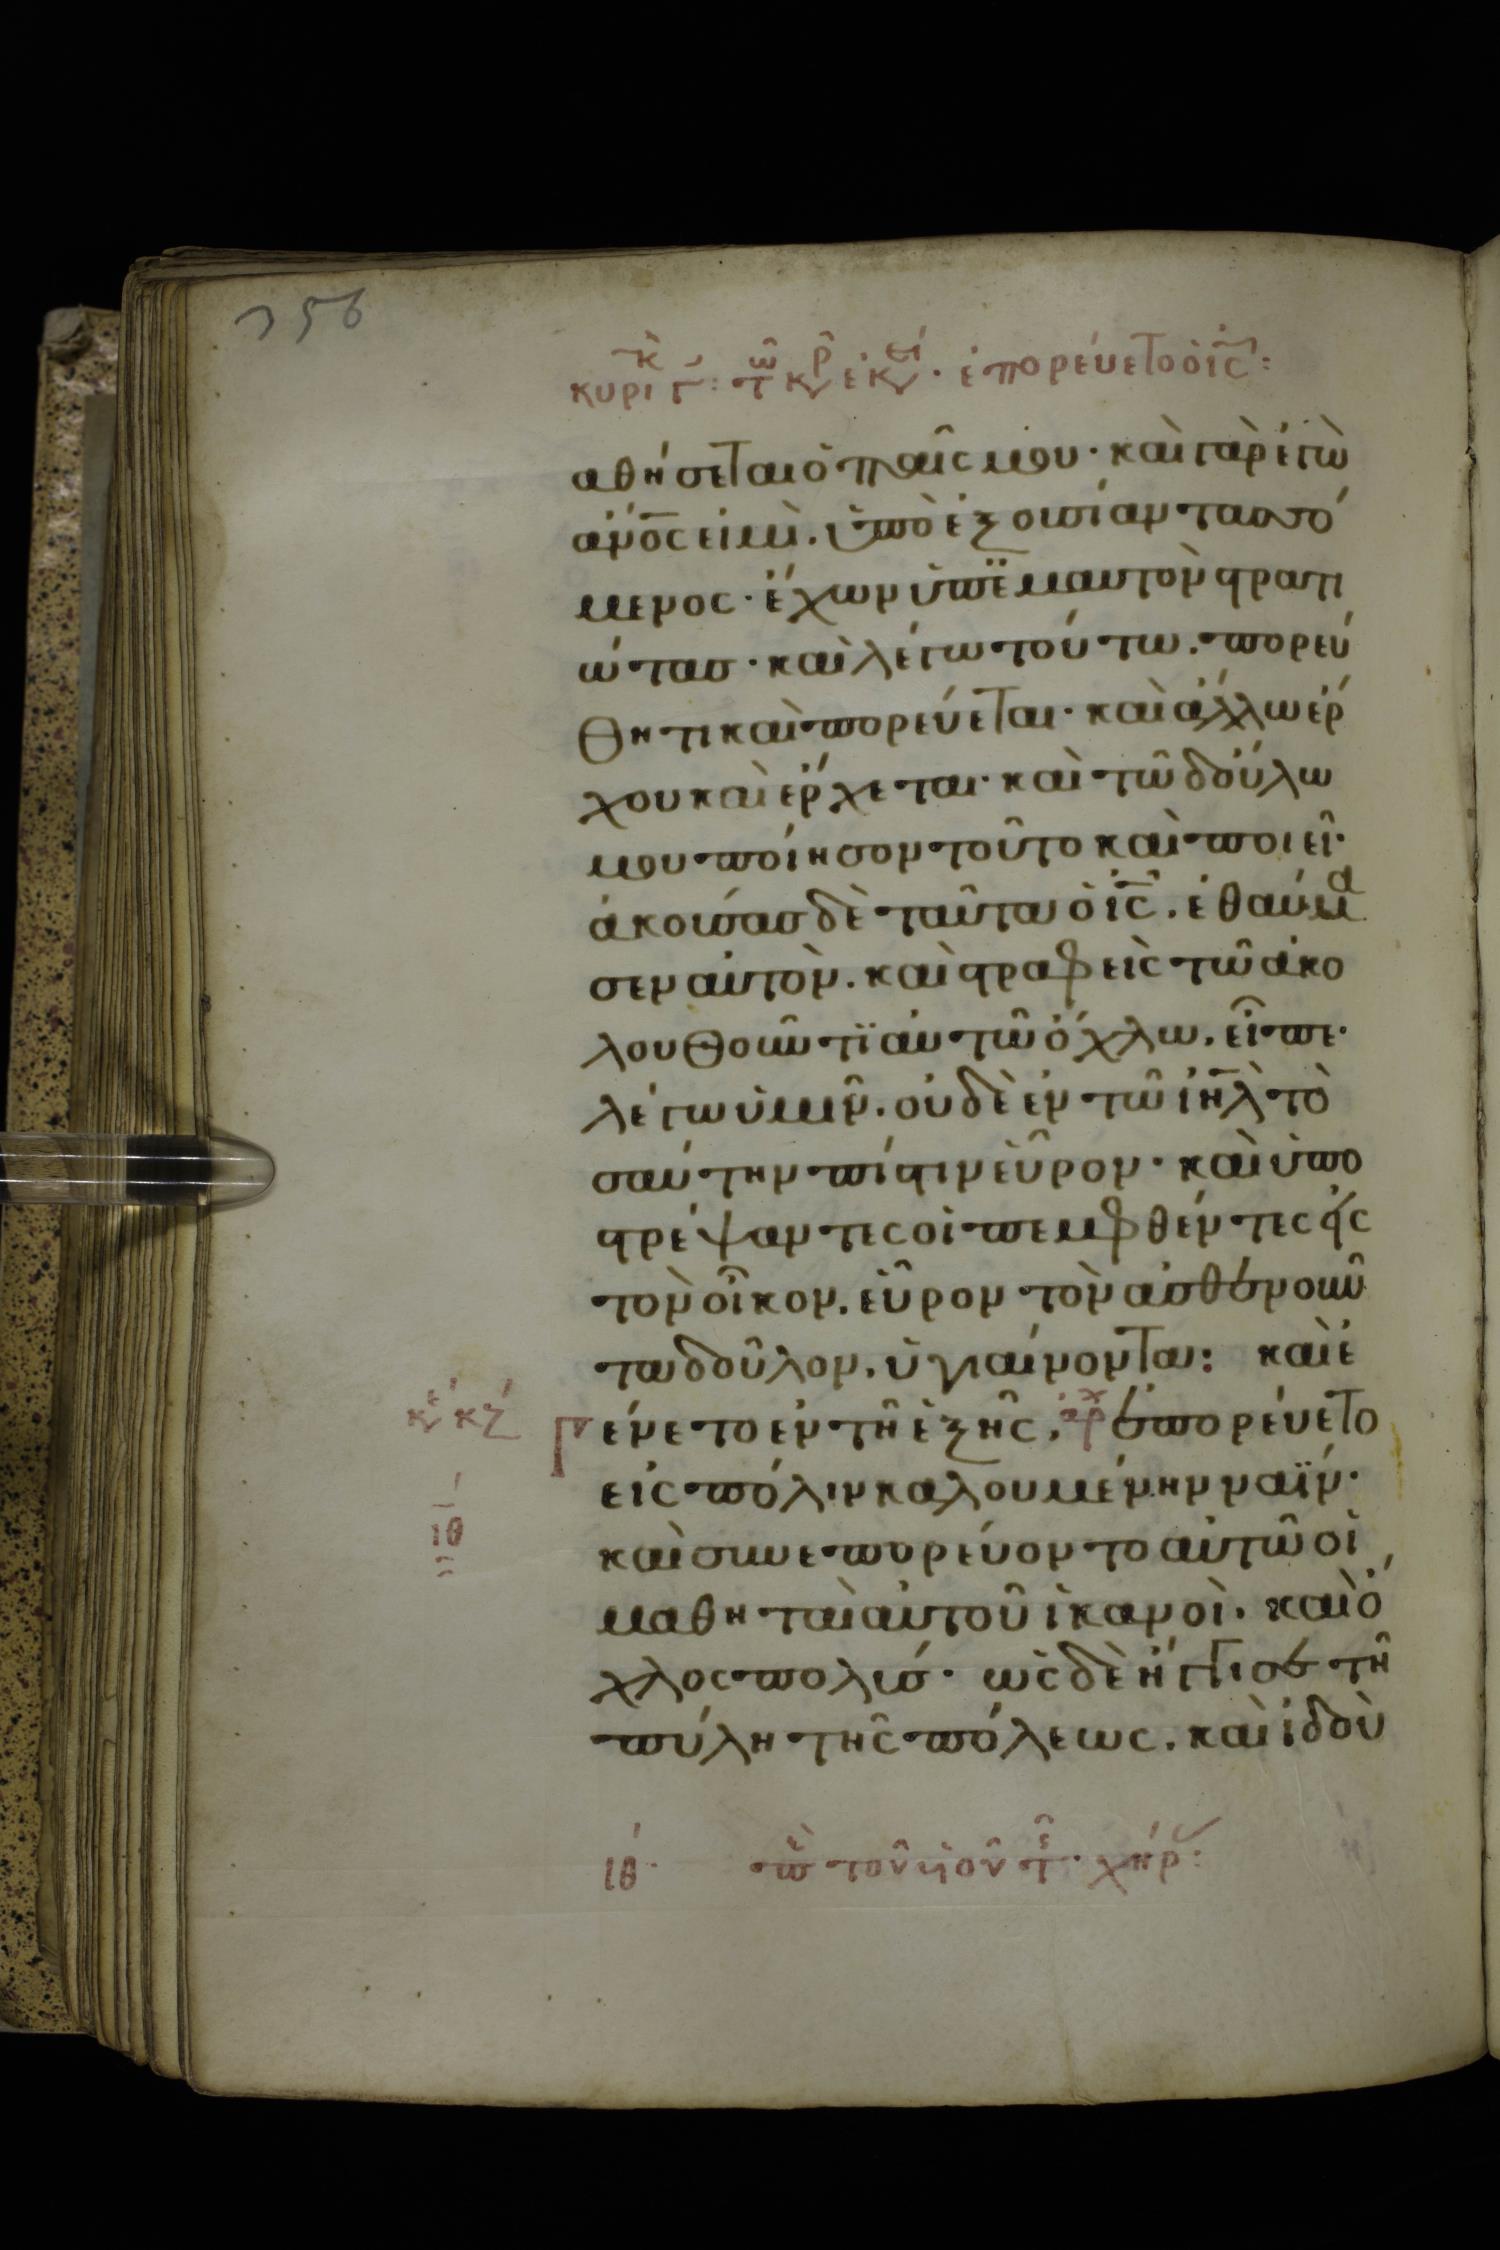 356
κυρι κ̀ γ: τῶ κρ ἐκει· ἐπορεύετο ὁ ις:
αθήσεται ὁ παῖς μου· καὶ γὰρ ἐγὼ
ἄνος εἰμὶ. ὑπὸ ἐξουσίαν τασσό
μενος· ἔχων ὑπ' ἐμαυτὸν στρατι
ώτας· καὶ λέγω τούτω. πορεύ
θητι καὶ πορεύεται· καὶ ἄλλω ἔρ
χου καὶ ἔρχεται· καὶ τῶ δούλω
μου ποίησον τοῦτο καὶ ποιεῖ·
ἀκούσας δὲ ταῦτα ὁ ις. ἐθαύμα
σεν αὐτὸν. καὶ στραφεὶς τῶ ἀκο
λουθοῦντϊ αὐτῶ ὄχλω. εἶπε·
λέγω ὑμῖν. οὐδὲ ἐν τῶ ιηλ το
σαύτην πίστιν εὗρον· καὶ ὑπο
στρέψαντες οἱ πεμφθέντες εἰς
τὸν οἶκον. εὗρον τὸν ἀσθενοῦν
τα δοῦλον. ὑγιαίνοντα: καὶ ἐ
κυ κζ γένετο ἐν τῆ ἑξῆς. ἀρχ ἐπορεύετο
εἰς πόλιν καλουμένην ναΐν·
ιθ καὶ συνεπορεύοντο αὐτῶ οἱ
μαθηταὶ αὐτοῦ ἱκανοὶ. καὶ ὄ
χλος πολύς· ὡς δὲ ἤγγισεν τῆ
πύλη τῆς πόλεως. καὶ ἰδοὺ
ιθ· π τοῦ υἱοῦ τῆς χήρ: